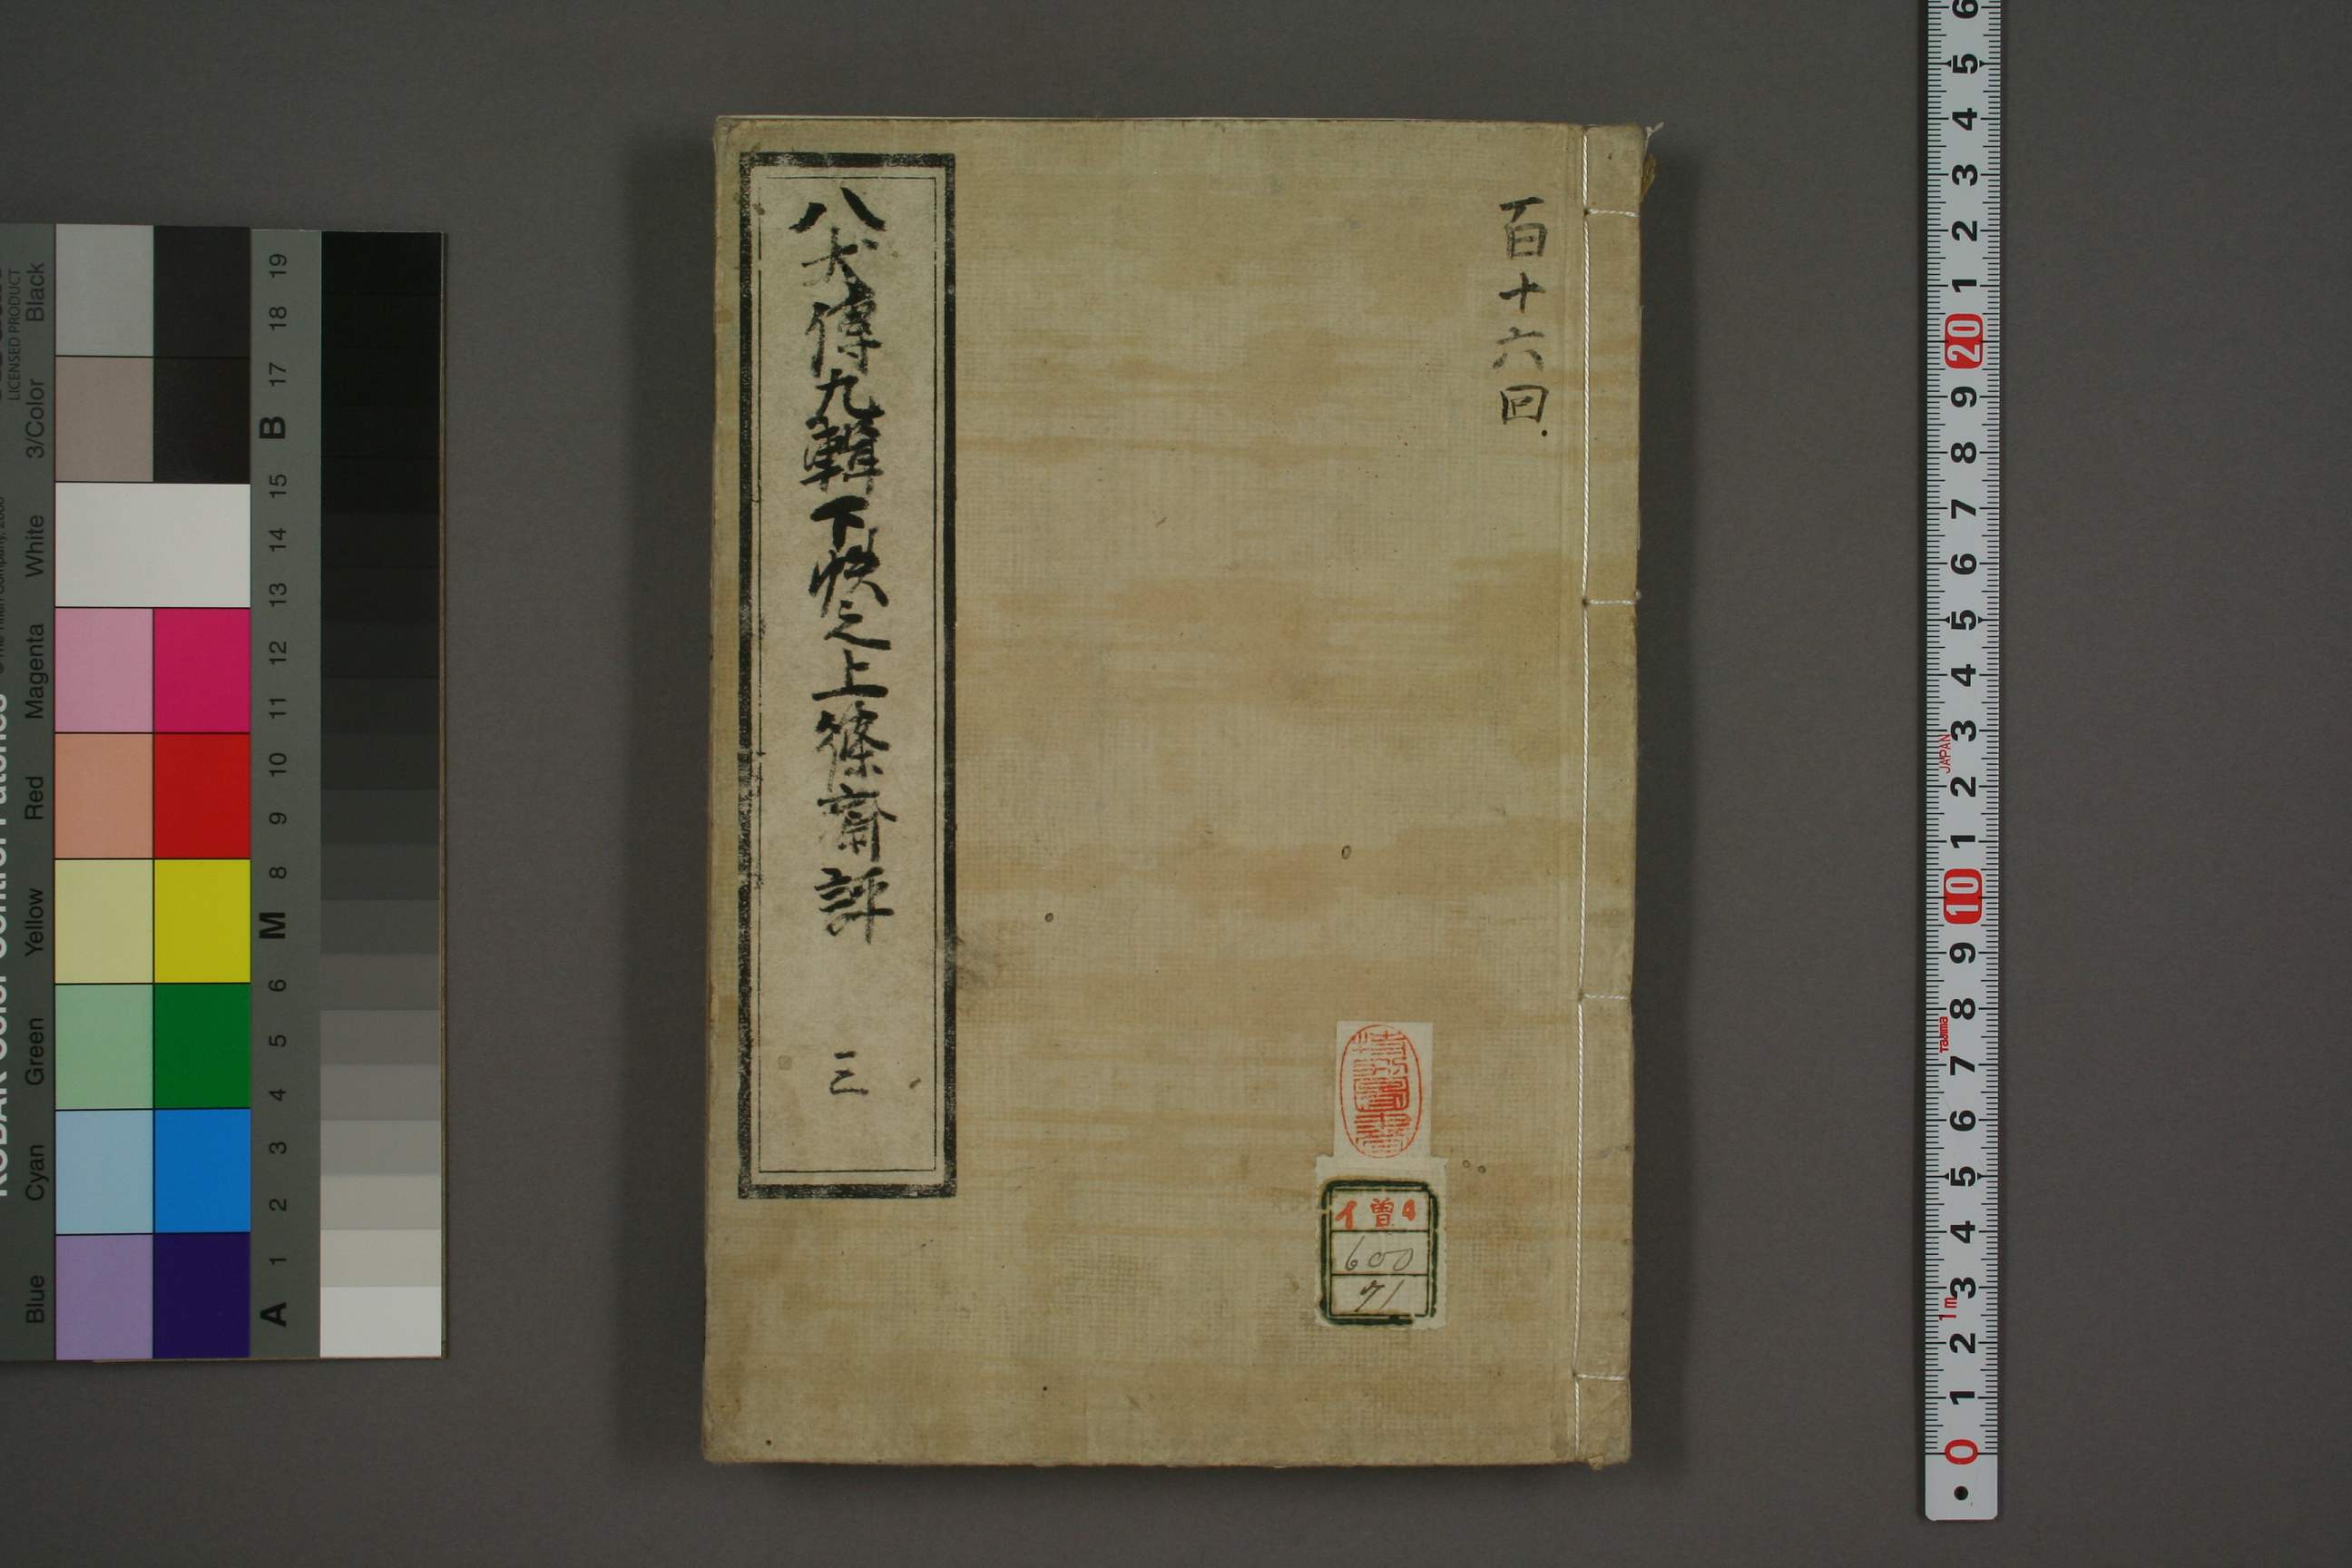 百十六回
八犬傳九輯下帙之上篠齋評 三
イ 曽 4
600
71
Black
3/Color
White
Magenta
Red
Yellow
Green
Cyan
Blue
LICENSED PRODUCT
19
18
17
B
15
14
13
12
11
10
9
8
M
6
5
4
3
2
1
A
6
5
4
3
2
1
20
9
8
7
6
5
4
3
JAPAN
2
1
10
9
8
Tajima
7
6
5
4
3
1m
2
1
0